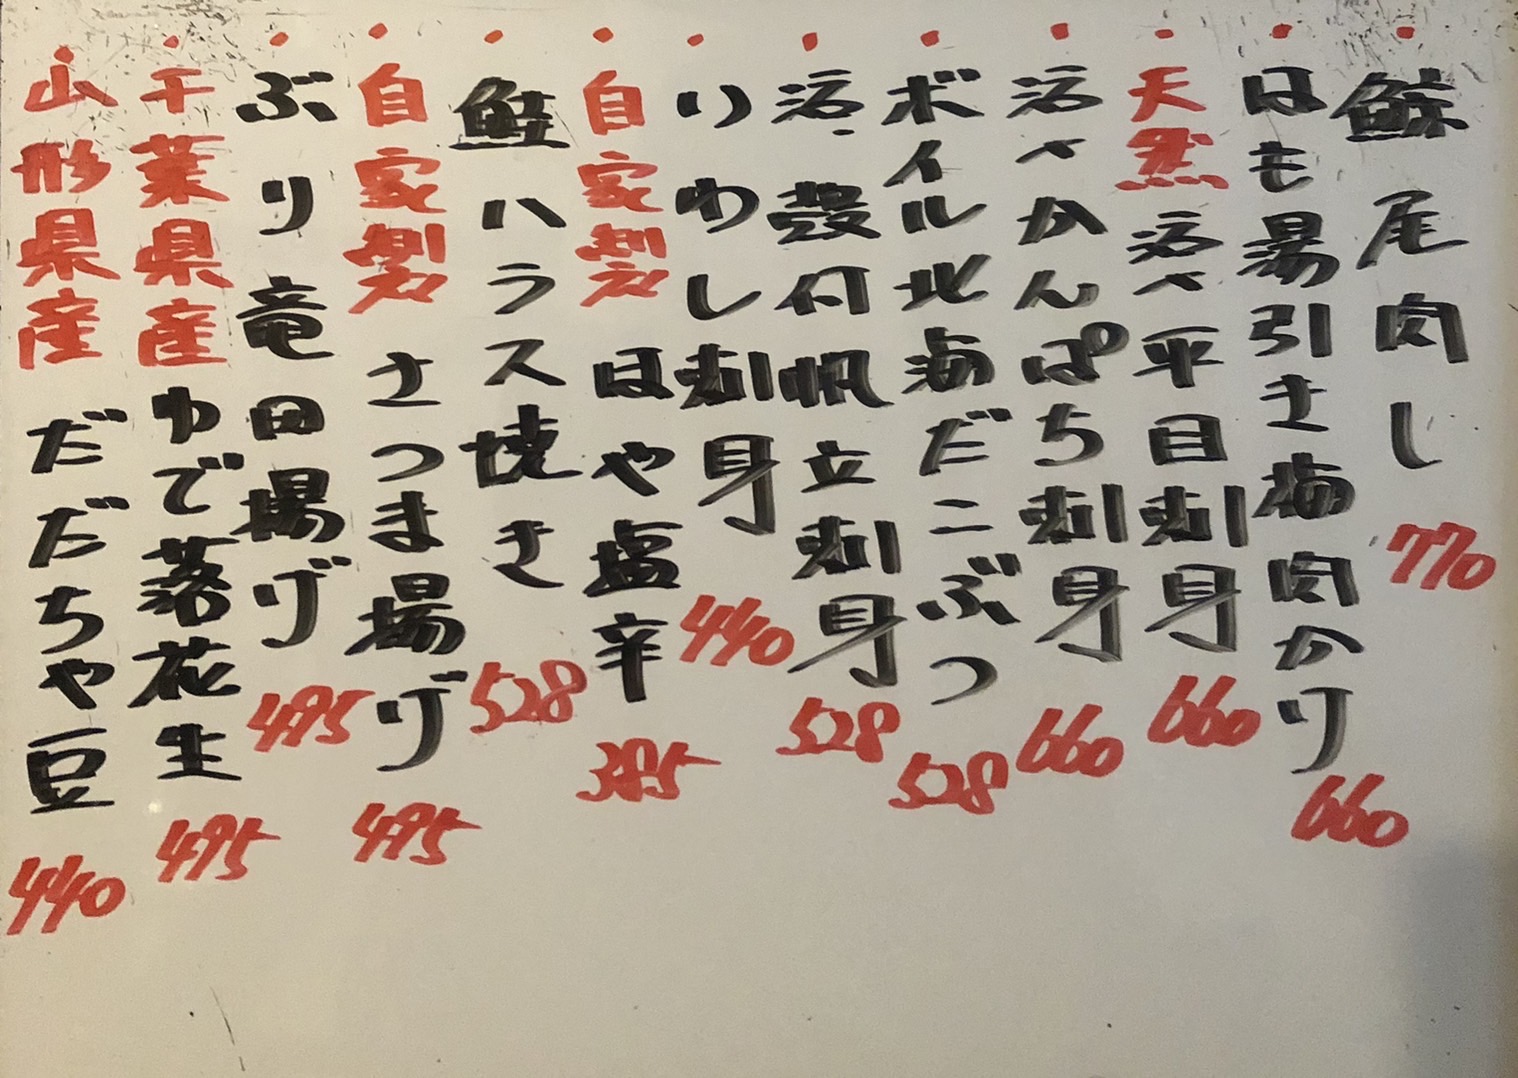 鯨尾肉し 770
はも湯引き梅肉かけ 660
天然 活〆平目刺身 660
活〆かんぱち刺身 660
ボイル北海ダコぶつ 528
活・殻付帆立刺身 528
いわし刺身 440
自家製 ほや塩辛 385
鮭ハラス焼き 528
自家製 さつま揚げ 495
ぶり竜田揚げ 495
千葉県産 ゆで落花生 495
山形県産 だだちゃ豆 440